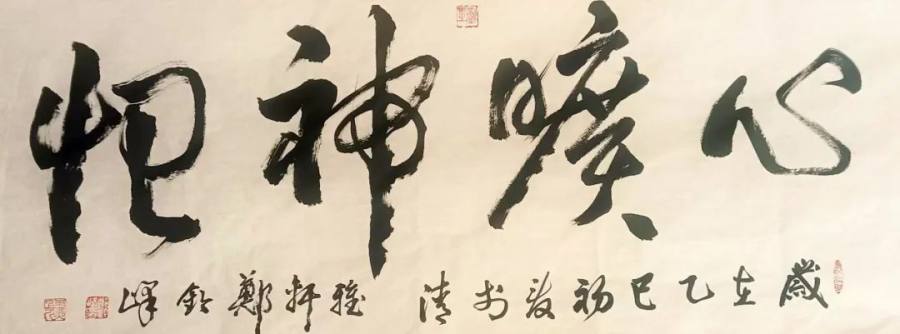 心曠神怡
歲在乙巳初夏於清雅軒鄭嶧